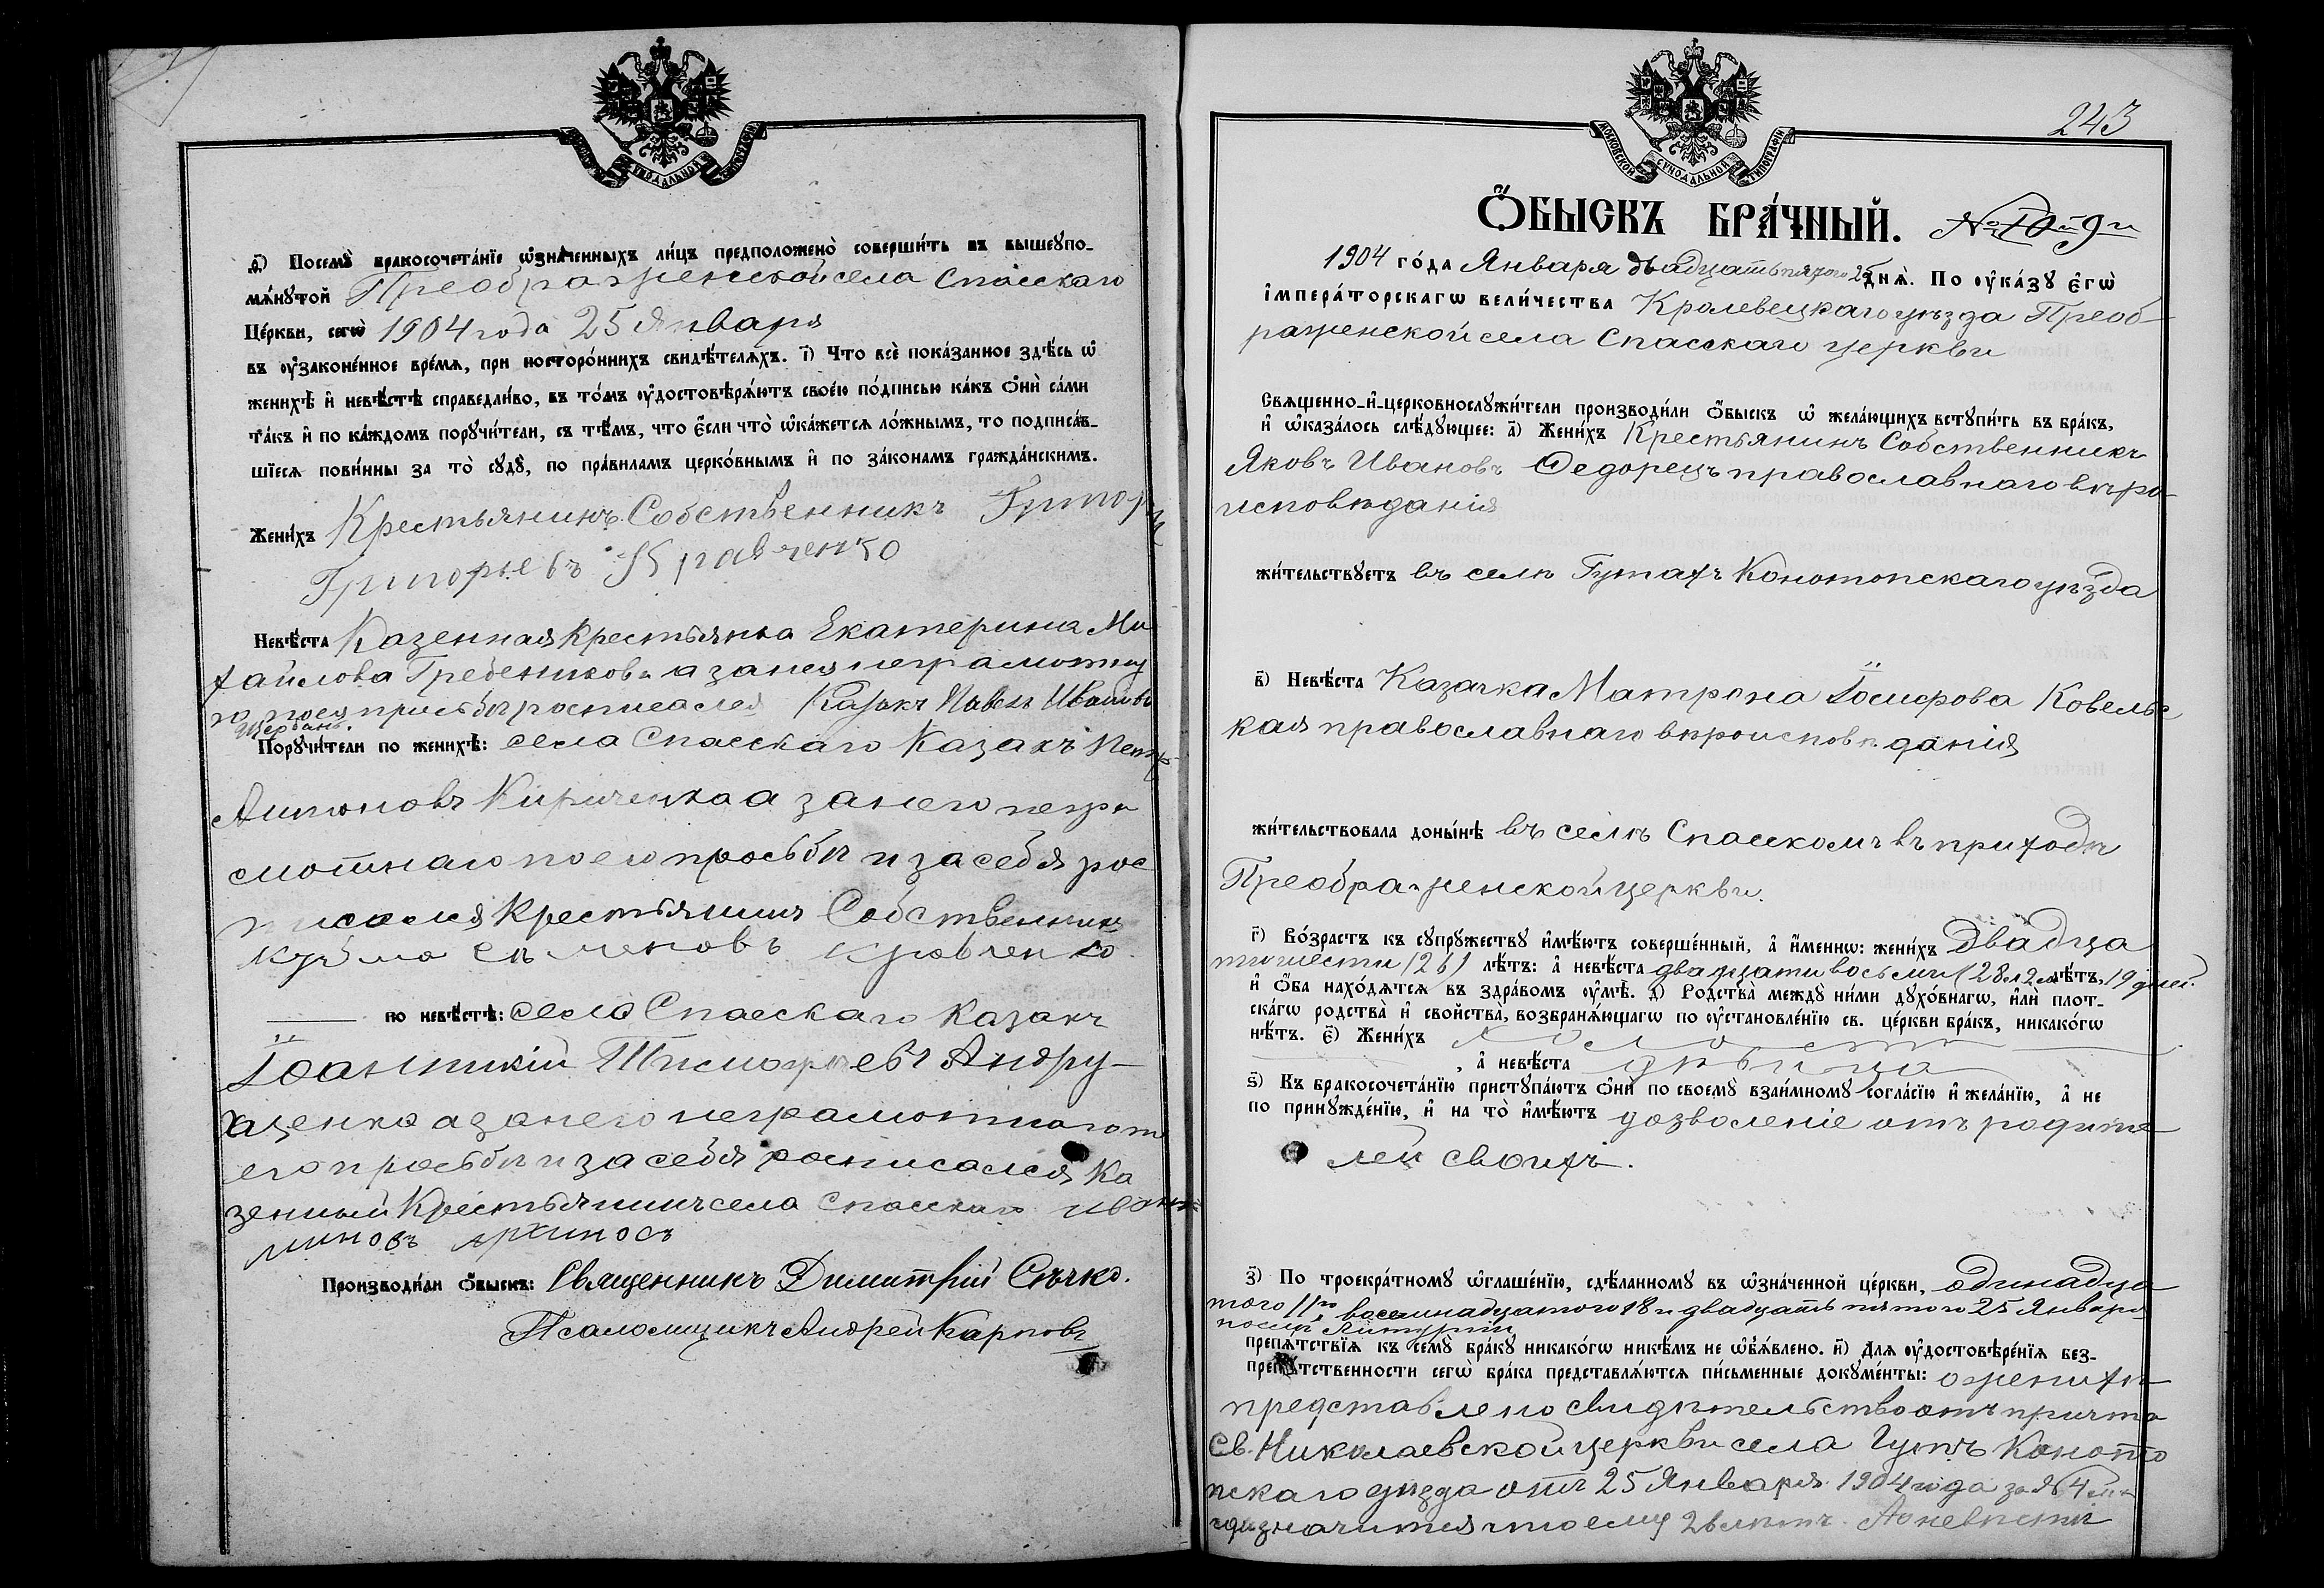 СѴНОДАЛЬНОЙ
ѳ҃) Посемꙋ̀ бракосочета́нїе ѡ҆зна́ченныхъ ли́цъ предположено̀ соверши́ть въ вышеꙋпо-
мѧ́нꙋтой Преображенской села Спасскаго
Це́ркви, сегѡ̀ 1904 года 25 Января
въ ᲂу҆законе́нное вре́мѧ, при посторо́ннихъ свидѣ́телѧхъ. і҃) Что всѐ пока́занное здѣ́сь ѡ҆
женихѣ̀ и҆ невѣ́стѣ справедли́во, въ то́мъ ᲂу҆достовѣрѧ́ютъ свое́ю по́дписью ка́къ ѻ҆нѝ са́ми
та́къ и҆ по ка́ждомъ порꙋчи́тели, съ тѣ́мъ, что є҆́сли что̀ ѡ҆ка́жетсѧ ло́жнымъ, то подписа́в-
шїесѧ пови́нны за то̀ сꙋдꙋ̀, по пра́виламъ церко́внымъ и҆ по зако́намъ гражда́нскимъ.
Жени́хъ Крестьянинъ Собственникъ Григори
Григорьевъ Кравченко
Невѣ́ста Казенная Крестьянка Екатерина Ми
хайлова Гребеникова а за нея неграмотну
ю по ея просьбѣ росписался Казакъ Павелъ Ивановъ
Щербань.
Порꙋчи́тели по женихѣ̀: села Спасскаго Казакъ Петръ
Антоновъ Кириченко а за него негра
мотнаго по его просьбѣ и за себя рос
писался Крестьянинъ Собственникъ
Кузма Семеновъ Кровченко
по невѣ́стѣ: села Спасскаго Казакъ
Іоанникій Тимофеевъ Андру-
щенко а за него неграмотнаго по
его просьбѣ и за себя росписался Ка
зенный Крестьянинъ села Спасскаго Иванъ
миновъ
Производи́ли ѻ҆́быскъ: Священникъ Димитрій Сѣчко.
Псаломщикъ Андрей Карповъ
243
МОСКОВСКОЙ СѴНОДАЛЬНОЙ ТИПОГРАФІИ
Ѻ҆́БЫСКЪ БРА́ЧНЫЙ. № 10-й 9-й
1904 го́да Января двадцать пятого 25 днѧ̀. По ᲂу҆ка́зꙋ є҆гѡ̀
і҆мпера́торскагѡ вели́чества Кролевецкаго уѣзда Преоб-
раженской села Спасскаго церкви
Свѧще́нно-и҆-церковнослꙋжи́тели производи́ли ѻ҆́быскъ ѡ҆ жела́ющихъ встꙋпи́ть въ бра́къ,
и҆ ѡ҆каза́лось слѣ́дꙋющее: а҃) Жени́хъ Крестьянинъ Собственникъ
Яковъ Ивановъ Федорецъ православнаго вѣро-
исповѣданія
жи́тельствꙋетъ въ селѣ Гутахъ Конотопскаго уѣзда
в҃) Невѣ́ста Казачка Матрона Іосифова Ковельс
кая православнаго вѣроисповѣданія
жи́тельствовала доны́нѣ въ селѣ Спасскомъ въ приходѣ
Преображенской церкви.
г҃) Во́зрастъ къ сꙋпрꙋ́жествꙋ и҆мѣ́ютъ соверше́нный, а҆ и҆́менно: жени́хъ двадца
ти шести (26) лѣ́тъ: а҆ невѣ́ста двадцати восьми (28 л 2 м лѣ́тъ, 19 дней.
и҆ ѻ҆́ба нахо́дѧтсѧ въ здра́вомъ ᲂу҆мѣ̀. д҃) Родства̀ междꙋ̀ ни́ми дꙋхо́внагѡ, и҆лѝ плот-
ска́гѡ родства̀ и҆ сво́йства̀, возбранѧ́ющагѡ по ᲂу҆становле́нїю св. це́ркви бра́къ, никако́гѡ
нѣ́тъ. є҃) Жени́хъ холостъ
, а҆ невѣ́ста дѣвица
ѕ҃) Къ бракосочета́нїю пристꙋпа́ютъ ѻ҆нѝ по своемꙋ̀ взаи́мномꙋ согла́сїю и҆ жела́нїю, а҆ не
по принꙋжде́нїю, и҆ на то̀ и҆мѣ́ютъ дозволеніе отъ родите
лей своихъ.
з҃) По троекра́тномꙋ ѡ҆глаше́нїю, сдѣ́ланномꙋ въ ѡ҆зна́ченной це́ркви, одинадца
того 11го восемнадцатого 18 и двадцать пятого 25 Января
послѣ Литургіи
препѧ́тствїѧ къ семꙋ̀ бра́кꙋ никако́гѡ никѣ́мъ не ѡ҆б̾ѧ́влено. и҃) Длѧ ᲂу҆достовѣре́нїѧ без-
препѧ́тственности сегѡ̀ бра́ка представлѧ́ютсѧ пи́сьменные докꙋме́нты: о женихѣ
представлено свидѣтельство отъ причта
Св. Николаевской церкви села Гутъ Коното
пскаго уѣзда отъ 25 Января 1904 года за № 4
гдѣ значится что ему 26 лѣтъ. А о невѣстѣ